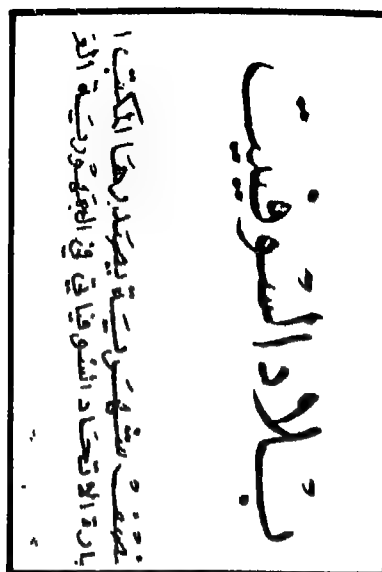 بلاد السوفيت
نصف شهرية يصدرها المكتب ا
الاتحاد السوفياتي في الجمهورية